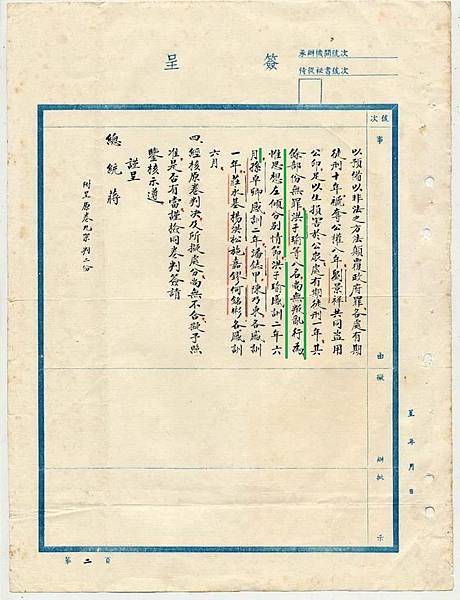 簽呈
承辦機關號次
侍從秘書號次
號次
事由擬辦批示
呈 年 月 日
以預備以非法之方法顛覆政府罪各處有期
徒刑十年褫奪公權八年劉景祥共同盜用
公印足以生損害於公衆處有期徒刑一年其
餘部份無罪洪于瑜等八名尚無叛亂行為
惟思想左傾分別情節洪于瑜感訓二年六
月孫卓卿感訓二年潘德甲陳乃東各感訓
一年莊永基楊洪松施嘉鏐何銘彬各感訓
六月
四、經核原卷判決及所擬處分尚無不合擬予照
准是否有當謹檢同卷判簽請
鑒核示遵
謹呈
總統 蔣
附呈原卷九宗判二份
第二頁